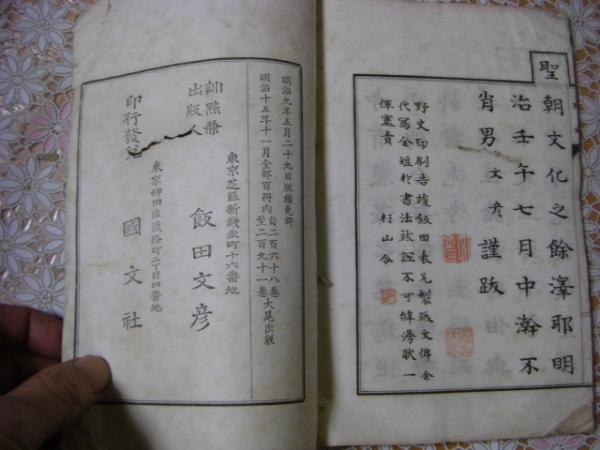 聖朝文化之餘澤耶明
治壬午七月中澣不
肖男文彦謹跋
野史印刷告竣飯田表兄製跋文俾余
代写余短於書法然誼不可辞漫狀一
揮塞責 杉山令
明治九年五月二十九日版権免許
明治十五年十一月全部百冊內自二百六十八卷至二百九十一卷大尾出版
訓點兼出版人 飯田文彦
東京芝區新錢座町十六番地
印行發兌 國文社
東京神田區淡路町二丁目四番地